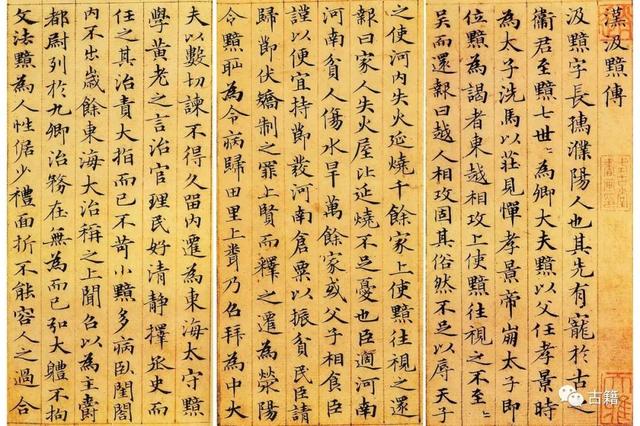 漢汲黯傳
汲黯字長孺濮陽人也其先有寵於古之
衛君至黯七世〻為卿大夫黯以父任孝景時
為太子洗馬以莊見憚孝景帝崩太子即
位黯為謁者東越相攻上使黯往視之不至〻
吳而還報曰越人相攻固其俗然不足以辱天子
之使河内失火延燒千餘家上使黯往視之還
報曰家人失火屋比延燒不足憂也臣過河南
河南貧人傷水旱萬餘家或父子相食臣
謹以便宜持節發河南倉粟以振貧民臣請
歸節伏矯制之罪上賢而釋之遷為滎陽
令黯耻為令病歸田里上聞乃召拜為中大
夫以數切諫不得久留內遷為東海太守黯
學黃老之言治官理民好清静擇丞史而
任之其治責大指而已不苛小黯多病臥閨閤
內不出歲餘東海大治稱之上聞召以為主爵
都尉列於九卿治務在無為而已弘大體不拘
文法黯為人性倨少禮面折不能容人之過合
古籍